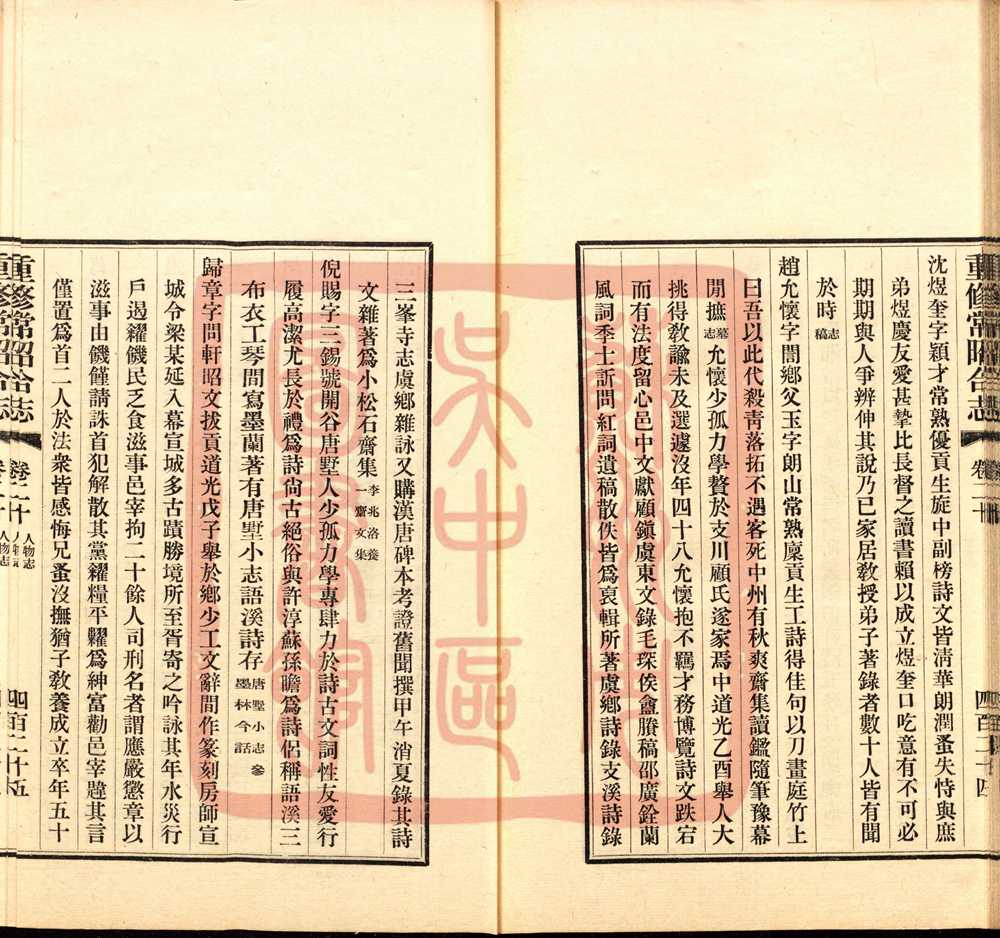 重修常昭合志
卷二十
四百二十四
沈煜奎字穎才常熟優貢生旋中副榜詩文皆淸華朗潤蚤失恃與庶
弟煜慶友愛甚摯比長督之讀書賴以成立煜奎口吃意有不可必
期期與人爭辨伸其說乃已家居敎授弟子著錄者數十人皆有聞
於時志稿
趙允懷字闇鄉父玉字朗山常熟廩貢生工詩得佳句以刀畫庭竹上
曰吾以此代殺靑落拓不遇客死中州有秋爽齋集讀鑑隨筆豫幕
閒摭墓志允懷少孤力學贅於支川顧氏遂家焉中道光乙酉舉人大
挑得敎諭未及選遽沒年四十八允懷抱不羈才務博覽詩文跌宕
而有法度留心邑中文獻顧鎭虞東文錄毛琛俟盦賸稿邵廣銓蘭
風詞季士訢問紅詞遺稿散佚皆爲裒輯所著虞鄉詩錄支溪詩錄
三峯寺志虞鄉雜詠又購漢唐碑本考證舊聞撰甲午消夏錄其詩
文雜著爲小松石齋集李兆洛養一齋文集
倪賜字三錫號開谷唐墅人少孤力學專肆力於詩古文詞性友愛行
履高潔尤長於禮爲詩尙古絕俗與許淳蘇孫瞻爲詩侶稱語溪三
布衣工琴間寫墨蘭著有唐墅小志語溪詩存唐墅小志參墨林今話
歸章字問軒昭文拔貢道光戊子舉於鄉少工文辭間作篆刻房師宣
城令梁某延入幕宣城多古蹟勝境所至胥寄之吟詠其年水災行
戶遏糴饑民乏食滋事邑宰拘二十餘人司刑名者謂應嚴懲章以
滋事由饑僅請誅首犯解散其黨糴糧平糶爲紳富勸邑宰韙其言
僅置爲首二人於法衆皆感悔兄蚤沒撫猶子敎養成立卒年五十
重修常昭合志
卷二十
人物志
四百二十五
吳中區